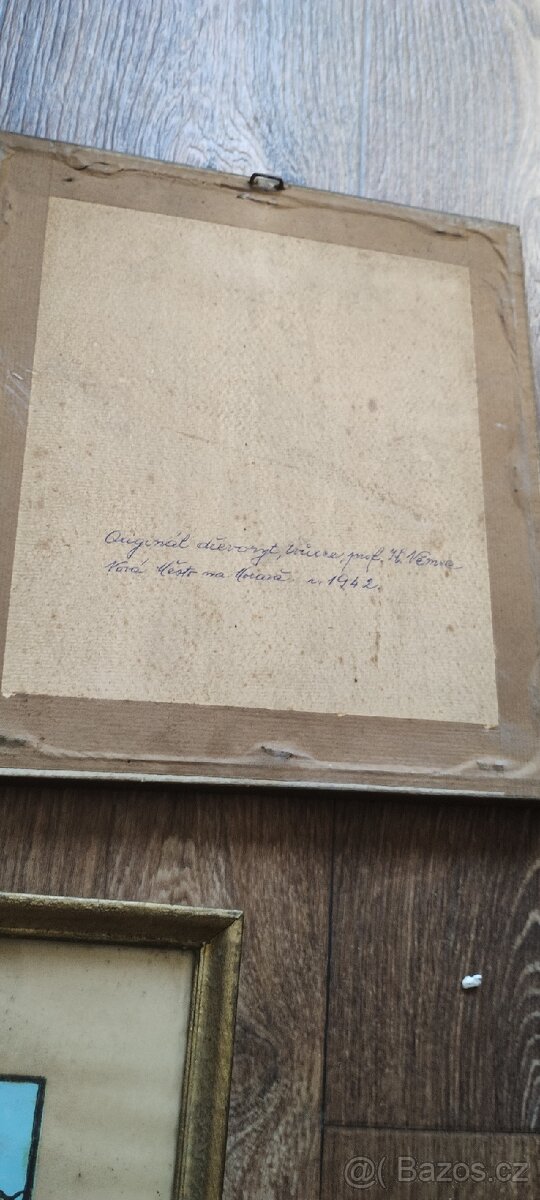 Originál dřevoryt, prof. Němce
Nové Město na Moravě r. 1942.
@ Bazos.cz